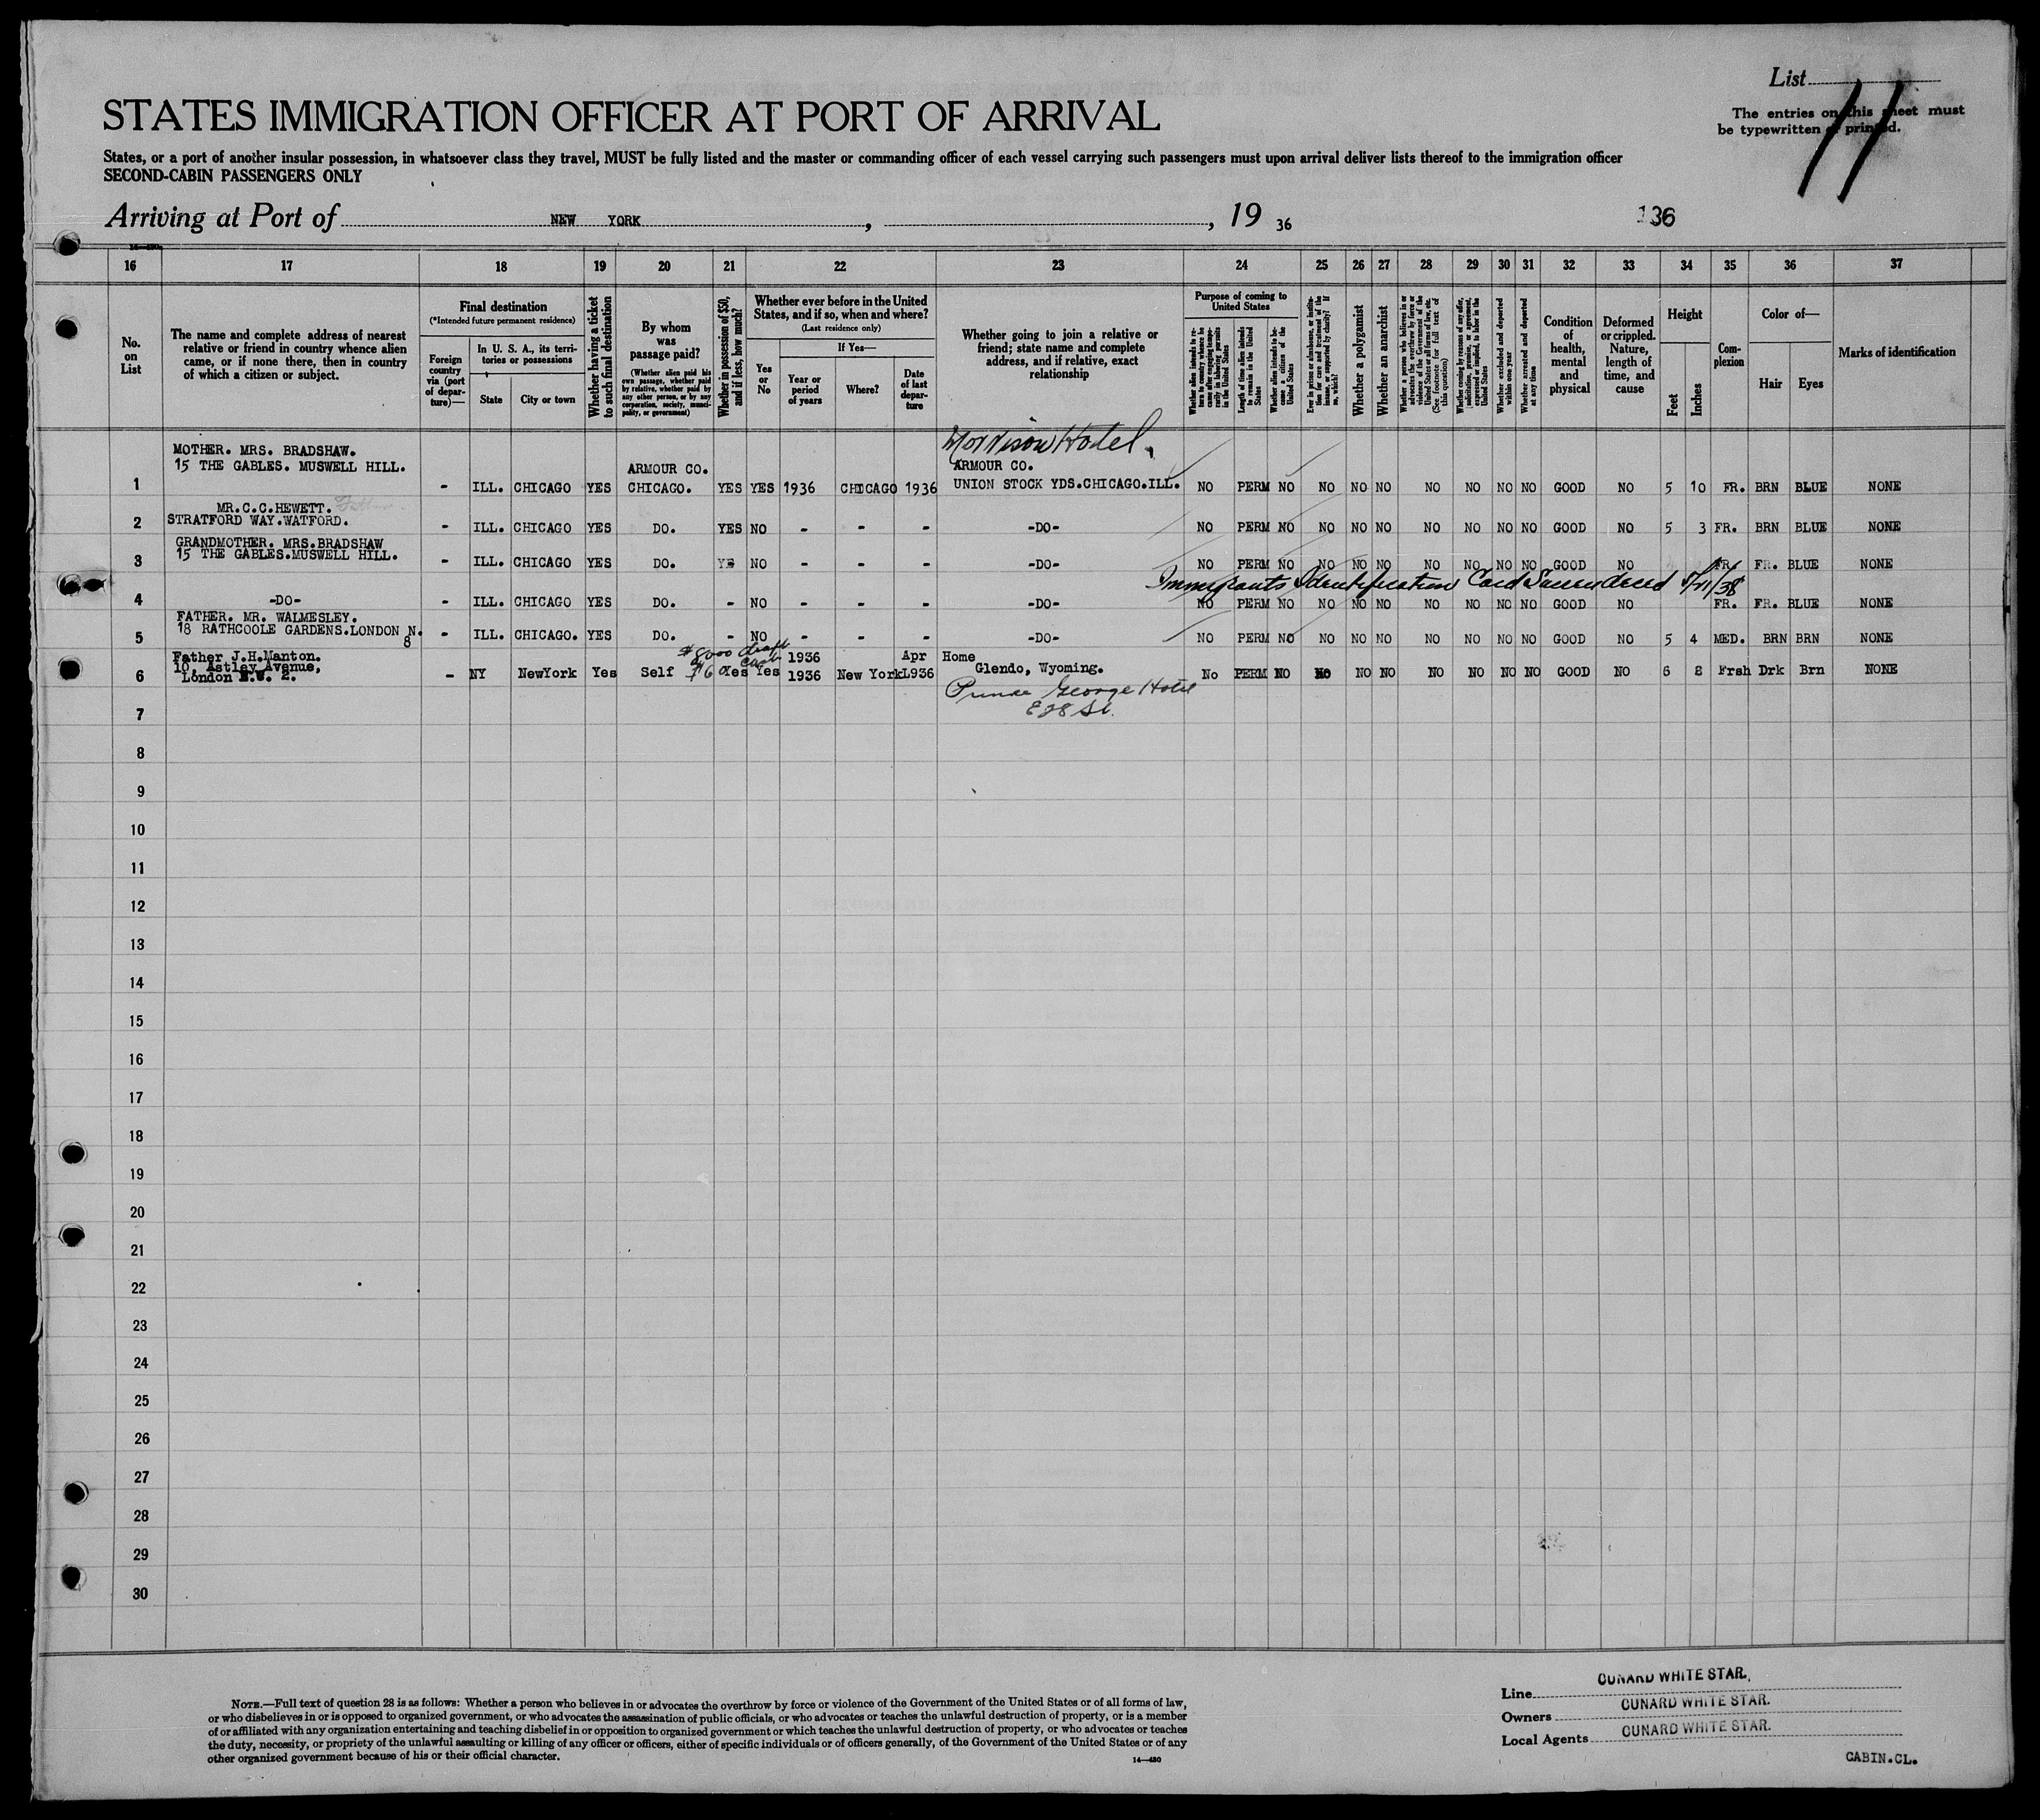 List
11
The entries on this sheet must
be typewritten or printed.
STATES IMMIGRATION OFFICER AT PORT OF ARRIVAL
States, or a port of another insular possession, in whatsoever class they travel, MUST be fully listed and the master or commanding officer of each vessel carrying such passengers must upon arrival deliver lists thereof to the immigration officer
SECOND-CABIN PASSENGERS ONLY
Arriving at Port of NEW YORK , , 19 36
136
16 17 18 19 20 21 22 23 24 25 26 27 28 29 30 31 32 33 34 35 36 37
No. on List
The name and complete address of nearest relative or friend in country whence alien came, or if none there, then in country of which a citizen or subject.
Final destination
(*Intended future permanent residence)
Foreign country via (port of departure)—
In U. S. A., its territories or possessions
State
City or town
Whether having a ticket to such final destination
By whom was passage paid?
(Whether alien paid his own passage, whether paid by relative, whether paid by any other person, or by any corporation, society, municipality, or government)
Whether in possession of $50, and if less, how much?
Whether ever before in the United States, and if so, when and where?
(Last residence only)
Yes or No
If Yes—
Year or period of years
Where?
Date of last departure
Whether going to join a relative or friend; state name and complete address, and if relative, exact relationship
Purpose of coming to United States
Whether alien intends to return to country whence he came after engaging temporarily in laboring pursuits in the United States
Length of time alien intends to remain in the United States
Whether alien intends to become a citizen of the United States
Ever in prison or almshouse, or institution for care and treatment of the insane, or supported by charity? If so, which?
Whether a polygamist
Whether an anarchist
Whether a person who believes in or advocates the overthrow by force or violence of the Government of the United States or all forms of law, etc. (See footnote for full text of this question)
Whether coming by reason of any offer, solicitation, promise, or agreement, expressed or implied, to labor in the United States
Whether excluded and deported within one year
Whether arrested and deported at any time
Condition of health, mental and physical
Deformed or crippled. Nature, length of time, and cause
Height
Feet
Inches
Complexion
Color of—
Hair
Eyes
Marks of identification
Morrison Hotel.
MOTHER. MRS. BRADSHAW.
15 THE GABLES. MUSWELL HILL.
ARMOUR CO.
ARMOUR CO.
1 - ILL. CHICAGO YES CHICAGO. YES YES 1936 CHICAGO 1936 UNION STOCK YDS.CHICAGO.ILL. NO PERM NO NO NO NO NO NO NO NO GOOD NO 5 10 FR. BRN BLUE NONE
MR.C.C.HEWETT. Father
2 STRATFORD WAY.WATFORD. - ILL. CHICAGO YES DO. YES NO - - - -DO- NO PERM NO NO NO NO NO NO NO NO GOOD NO 5 3 FR. BRN BLUE NONE
GRANDMOTHER. MRS.BRADSHAW
3 15 THE GABLES.MUSWELL HILL. - ILL. CHICAGO YES DO. NO - - - -DO- NO PERM NO NO NO NO NO NO NO NO GOOD NO FR. FR. BLUE NONE
Immigrants Identification Card Surrendered
4 -DO- - ILL. CHICAGO YES DO. - NO - - - -DO- NO PERM NO NO NO NO NO NO NO NO GOOD NO FR. FR. BLUE NONE
FATHER. MR. WALMESLEY.
5 18 RATHCOOLE GARDENS.LONDON N. 8 - ILL. CHICAGO. YES DO. - NO - - - -DO- NO PERM NO NO NO NO NO NO NO NO GOOD NO 5 4 MED. BRN BRN NONE
$8000 draft
cash
Father J.H.Manton.
10, Astley Avenue,
London N.W. 2.
6 - NY NewYork Yes Self Yes Yes 1936 1936 New York Apr 1936 Home
Glendo, Wyoming.
No PERM NO NO NO NO NO NO NO NO GOOD NO 6 8 Frsh Drk Brn NONE
Prince George Hotel
E 28 St.
7
8
9
10
11
12
13
14
15
16
17
18
19
20
21
22
23
24
25
26
27
28
29
30
NOTE.—Full text of question 28 is as follows: Whether a person who believes in or advocates the overthrow by force or violence of the Government of the United States or of all forms of law,
or who disbelieves in or is opposed to organized government, or who advocates the assassination of public officials, or who advocates or teaches the unlawful destruction of property, or is a member
of or affiliated with any organization entertaining and teaching disbelief in or opposition to organized government or which teaches the unlawful destruction of property, or who advocates or teaches
the duty, necessity, or propriety of the unlawful assaulting or killing of any officer or officers, either of specific individuals or of officers generally, of the Government of the United States or of any
other organized government because of his or their official character.
14—430
Line CUNARD WHITE STAR.
Owners CUNARD WHITE STAR.
Local Agents CUNARD WHITE STAR.
CABIN.CL.